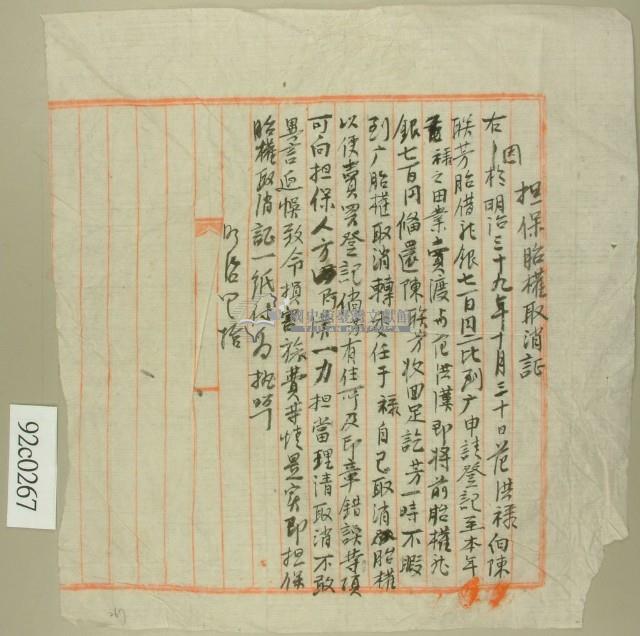 担保胎權取消証
右因於明治三十九年十月三十日范洪祿向陳
联芳胎借龍銀七百円比到广申請登記至本年
祿之田業賣渡与范洪漢即將前胎權龍
銀七百円備還陳联芳收回足訖芳一時不暇
到广胎權取消轉委任于祿自己取消胎權
以便賣買登記倘有住所及印章錯誤等項
可向担保人方一力担當理清取消不敢
異言延悞致令損害旅費等情是实即担保
胎權取消証一紙付為
明治四拾
92c0267
國史館臺灣文獻館